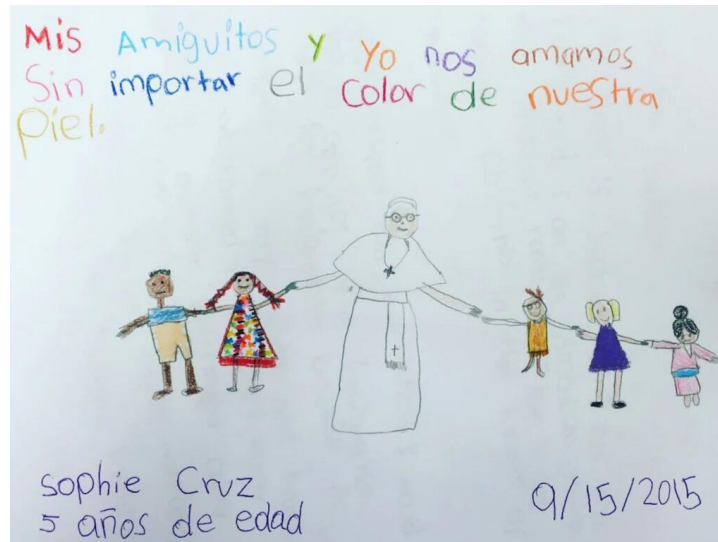 Mis Amiguitos y Yo nos amamos
Sin importar el Color de nuestra
Piel.
Sophie Cruz
5 años de edad
9/15/2015